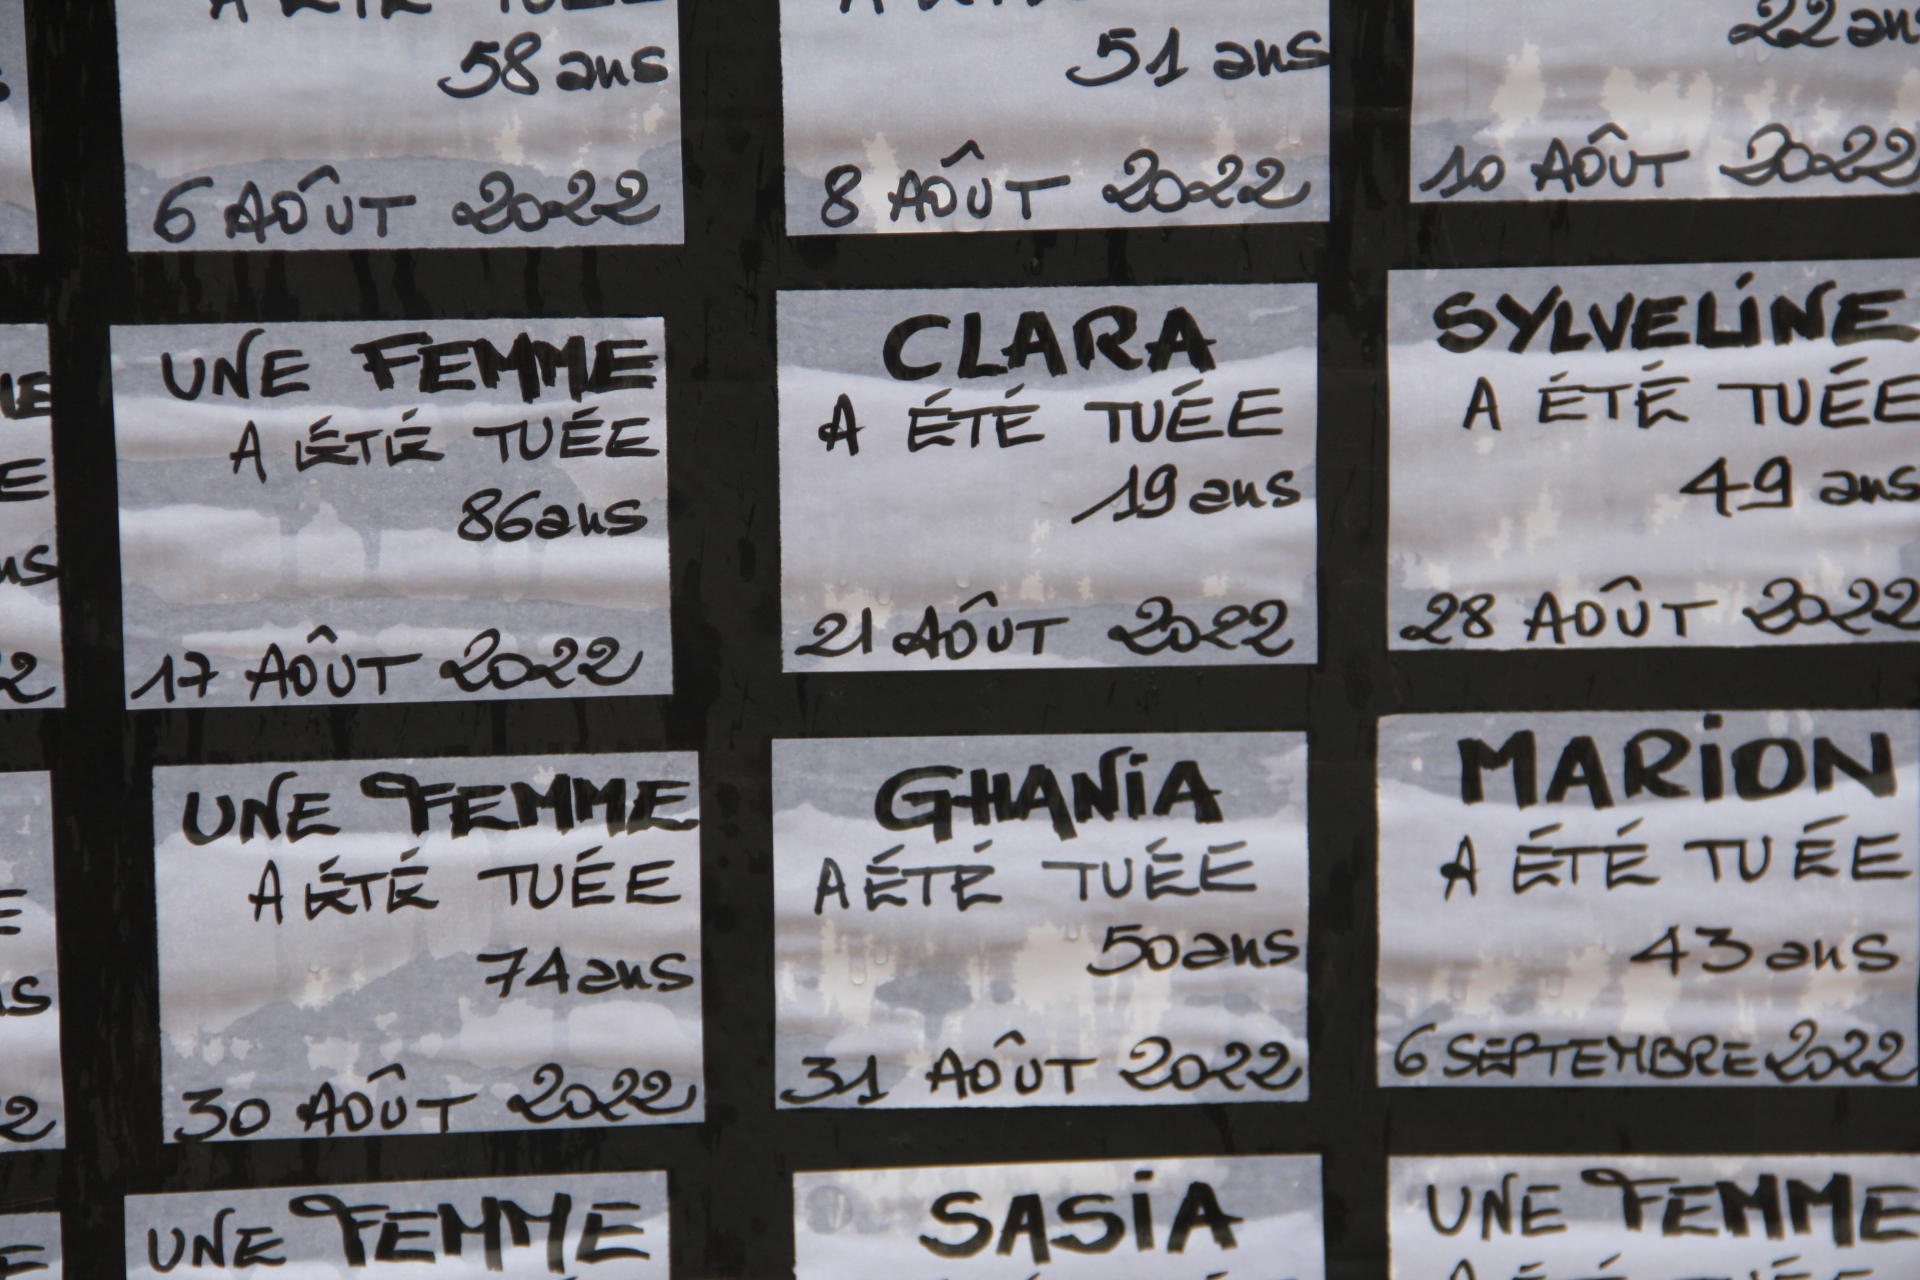 58 ans
6 AOÛT 2022
51 ans
8 AOÛT 2022
22 ans
10 AOÛT 2022
UNE FEMME
A ÉTÉ TUÉE
86 ans
17 AOÛT 2022
CLARA
A ÉTÉ TUÉE
19 ans
21 AOÛT 2022
SYLVELINE
A ÉTÉ TUÉE
49 ans
28 AOÛT 2022
UNE FEMME
A ÉTÉ TUÉE
74 ans
30 AOÛT 2022
GHANIA
A ÉTÉ TUÉE
50 ans
31 AOÛT 2022
MARION
A ÉTÉ TUÉE
43 ans
6 SEPTEMBRE 2022
UNE FEMME
SASIA
UNE FEMME